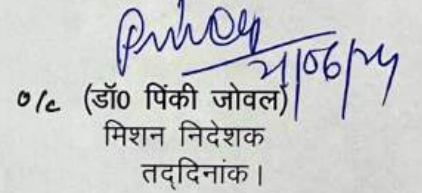 21/06/24
o/c (डॉ0 पिंकी जोवल)
मिशन निदेशक
तद्दिनांक।